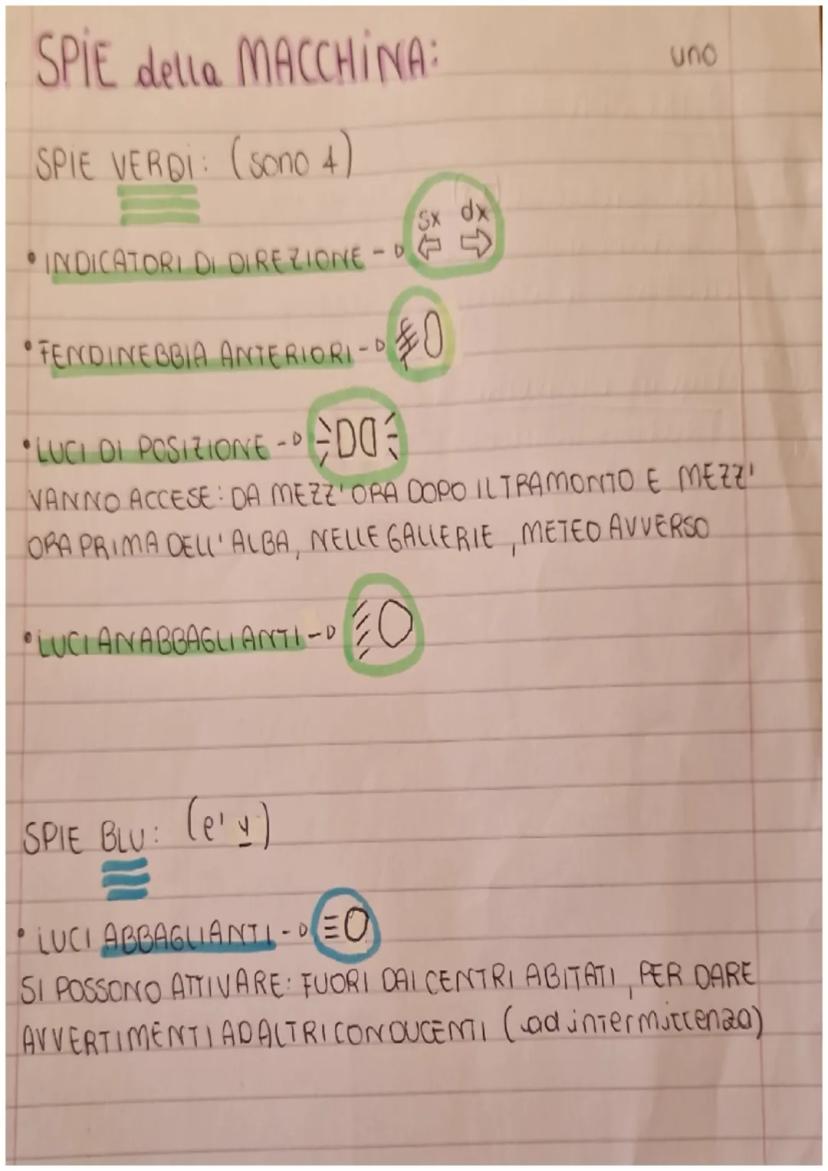 SPIE della MACCHINA:
uno
SPIE VERDI: (sono 4)
sx dx
• INDICATORI DI DIREZIONE -
• FENDINEBBIA ANTERIORI -
• LUCI DI POSIZIONE -
VANNO ACCESE: DA MEZZ'ORA DOPO IL TRAMONTO E MEZZ'
ORA PRIMA DELL'ALBA, NELLE GALLERIE, METEO AVVERSO
• LUCI ANABBAGLIANTI -
SPIE BLU: (e' 1)
• LUCI ABBAGLIANTI -
SI POSSONO ATTIVARE: FUORI DAI CENTRI ABITATI, PER DARE
AVVERTIMENTI AD ALTRI CONDUCENTI (ad intermittenza)